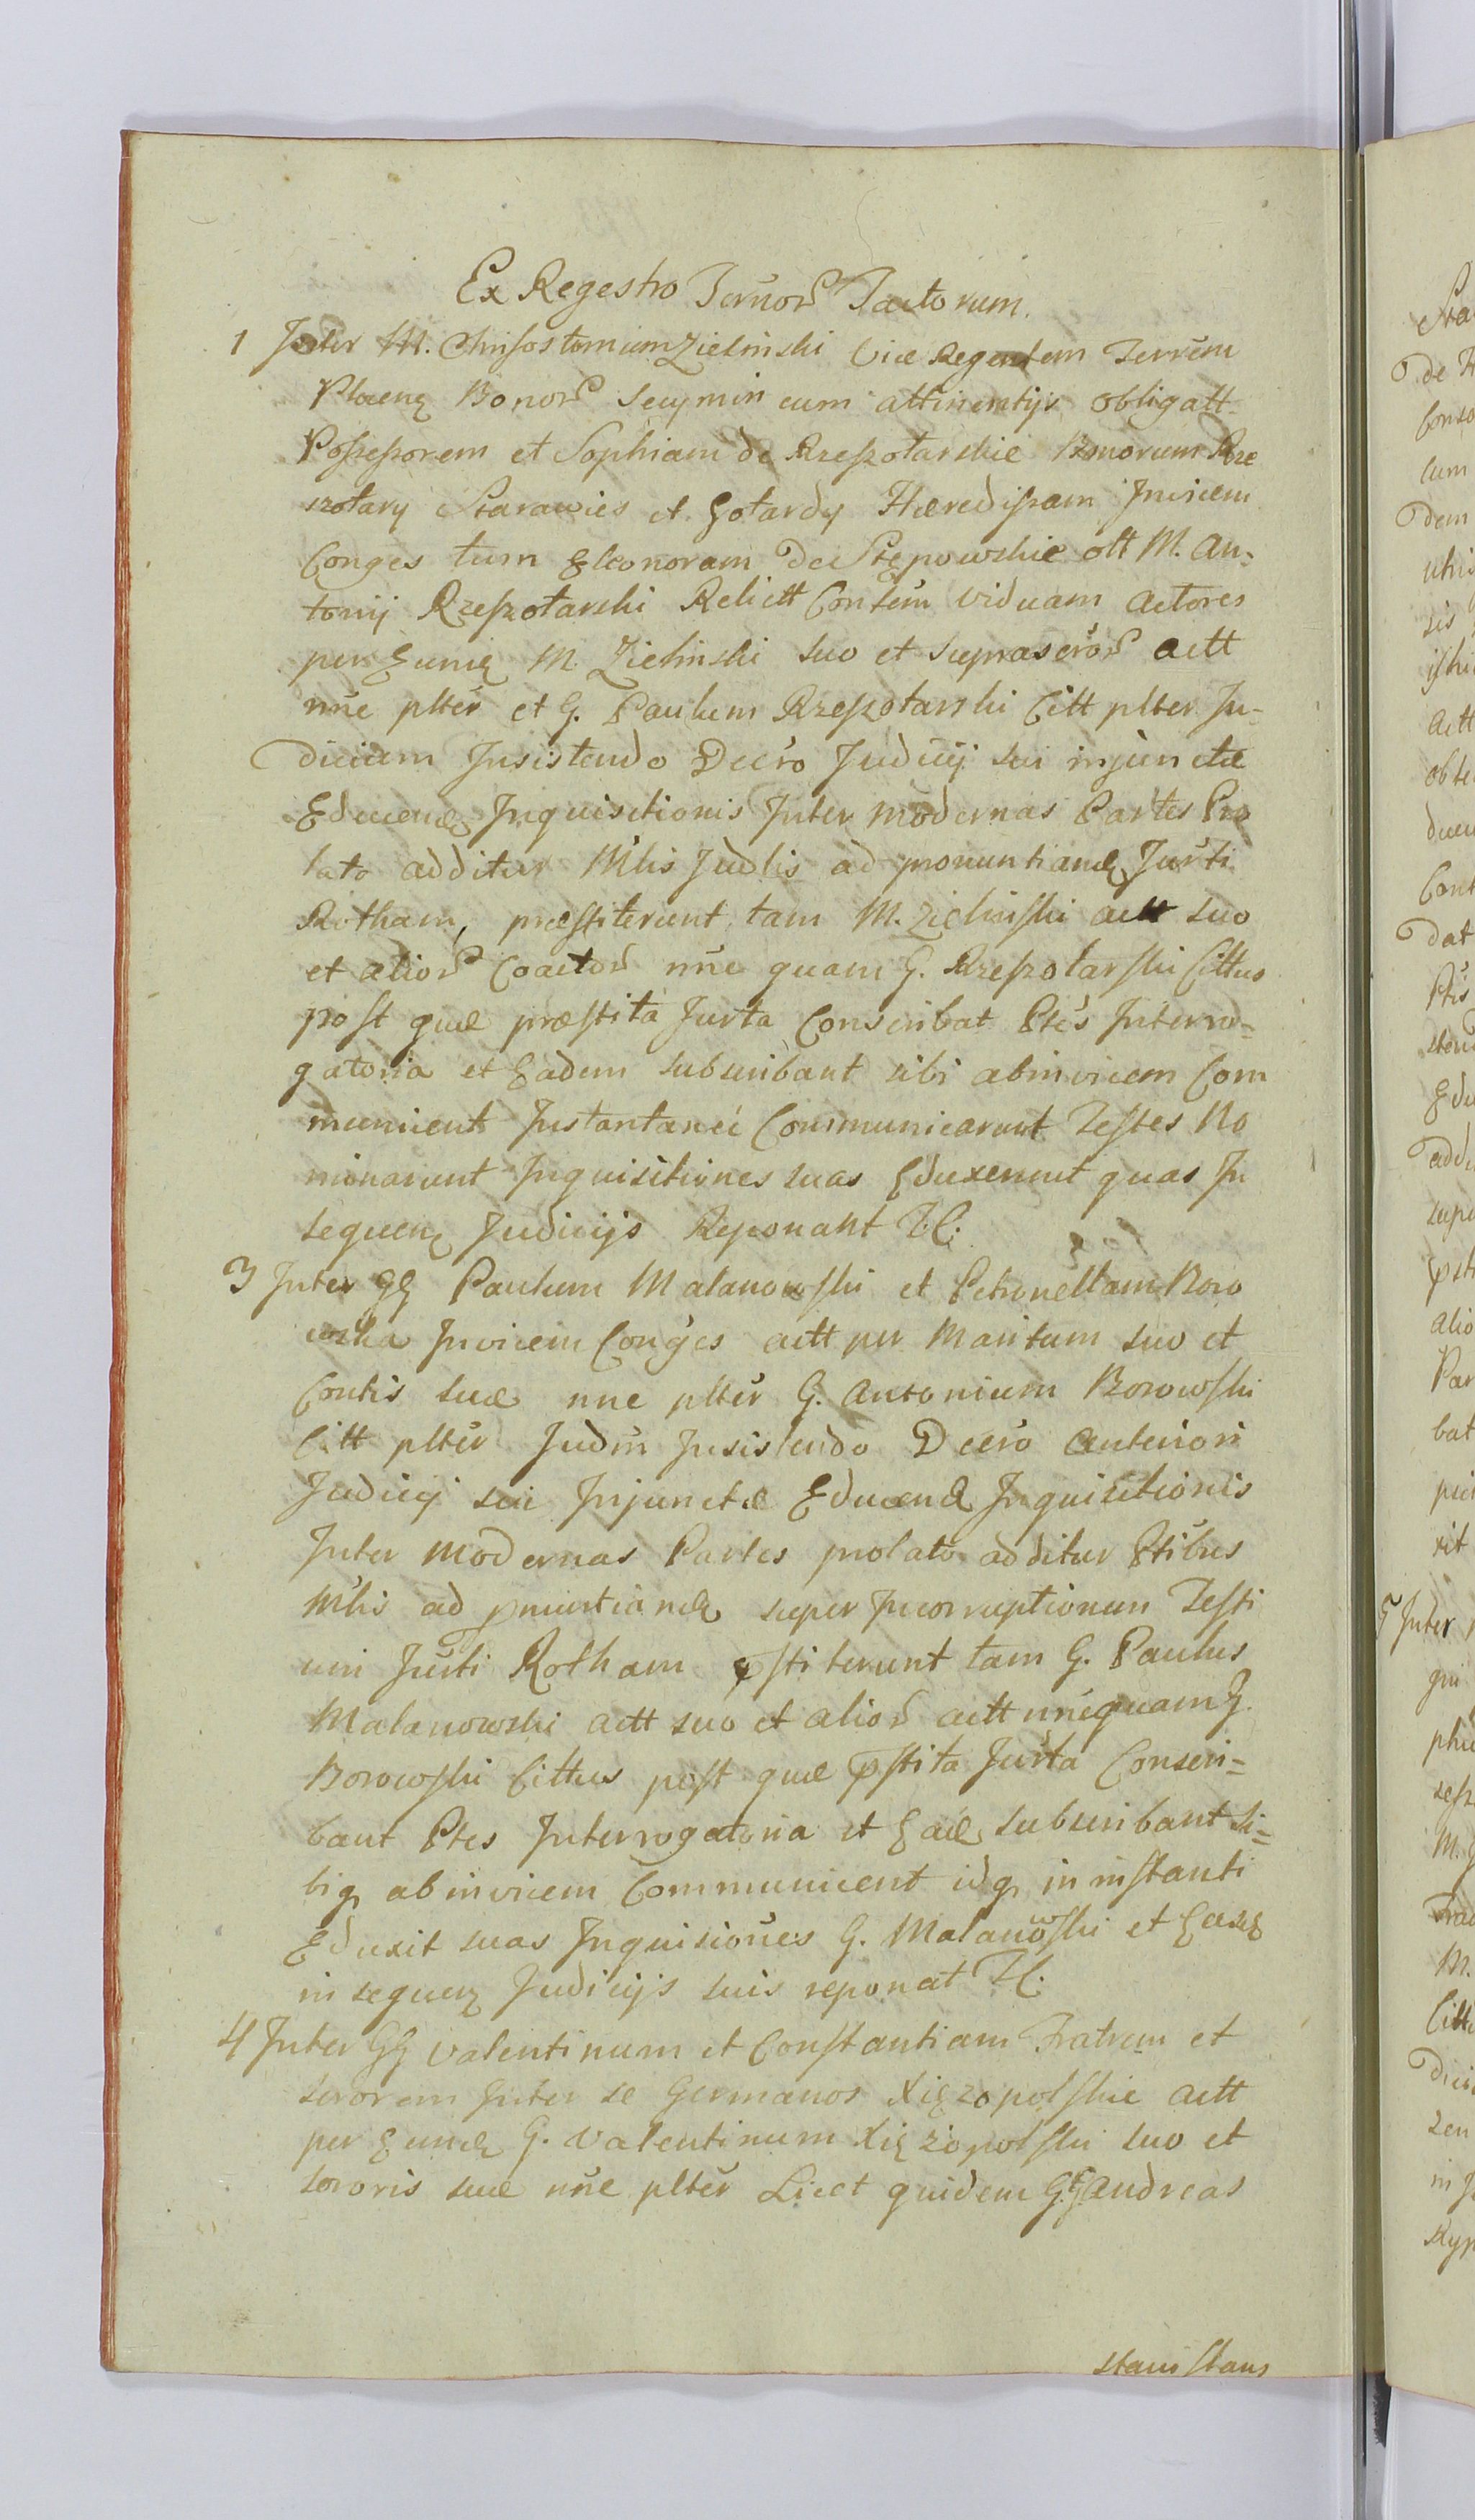 Ex Regestro Ternor Tactorum.
1 Inter M. Chrisostomum Zielinski Vice Regentem Terrem
Plocen Bonor Secymin cum attinentijs obligatt
Possessorem et Sophiam de Rzeszotarskie Bonorum Rze
szotary Starawies et Gotardy Hæredissam Invicem
Conges tum Eleonoram de Stępowskie olt M. An-
tonij Rzeszotarski Relictt Contem Viduam Actores
per Eunę M. Zielinski suo et suprascror Actt
nne plter et G. Paulum Rzeszotarski Citt plter Ju-
dicium Insistendo Decro Judicij sui injunctæ
Educenæ Inquisitionis Inter modernas Partes Pro
lato additur Mlis Judlis ad pronuntianę Jurti
Rotham, præstiterunt tam M. Zielinski actt suo
et alior Coactor nne quam G. Rzeszotarski Cittus
post quæ præstita Jurta Conscribat Ptes Interro-
gatoria et Eadem subscribant sibi abinvicem Com
municent Instantanei Communicarunt Testes No
minarunt Inquisitiones suas Eduxerunt quas In
sequenę Judicijs Reponant T.C.
3 Inter GG Paulum Malanowski et Petronellam Boro
wska Invicem Conges actt per Maritum suo et
Contis suæ nne plter G. Antonium Borowski
Citt plter Judm Insistendo Decro Anteriori
Judicij sui Injunctæ Educenæ Inquisitionis
Inter modernas Partes prolato additur Ptibus
Mlis ad pnuntianę super Incorruptionem Testi
um Jurti Rotham pstiterunt tam G. Paulus
Malanowski actt suo et alior actt nne quam G.
Borowski Cittus post quæ pstita Jurta Conscri-
bant Ptes Interrogatoria et Eade subscribant si-
biq abinvicem Communicent idq in instanti
Eduxit suas Inquisiones G. Malanowski et Easę
in sequenę Judicijs suis reponat T.C.
4 Inter GG Valentinum et Constantiam Fratrem et
sororem Inter se Germanos Xięzopolskie actt
per Eundę G. Valentinum Xięziopolski suo et
sororis suæ nne plter Licet quidem GG Andreas
Stanislaus